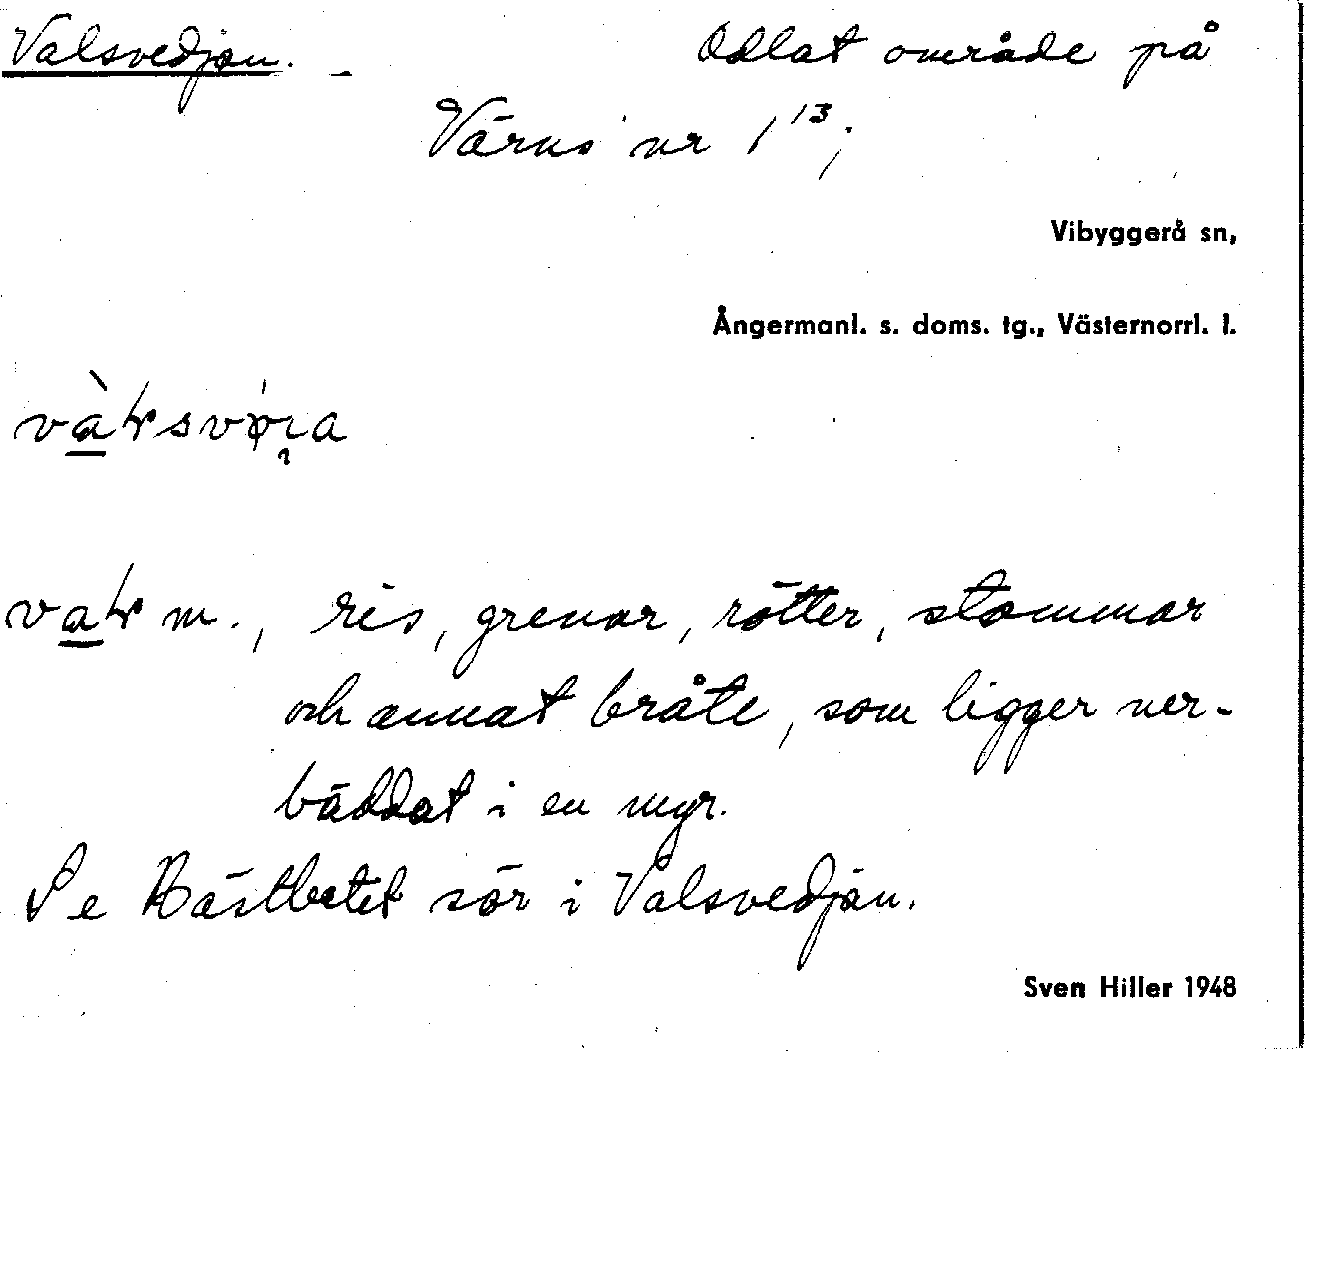 Valsvedjan. – Odlat område på
Värns nr 1¹³;
Vibyggerå sn,
Ångermanl. s. doms. tg., Västernorrl. l.
m., ris, grenar, rötter, stammar
och annat bråte, som ligger ner-
bäddat i en myr.
Se Hästbetet sör i Valsvedjan.
Sven Hiller 1948